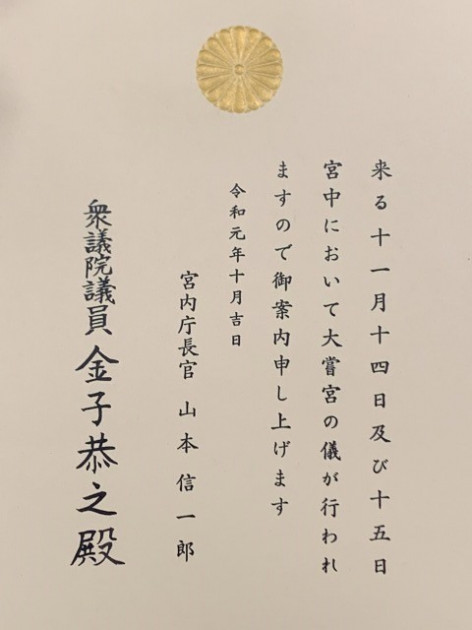 来る十一月十四日及び十五日
宮中において大嘗宮の儀が行われ
ますので御案内申し上げます
令和元年十月吉日
宮内庁長官 山本信一郎
衆議院議員 金子恭之殿